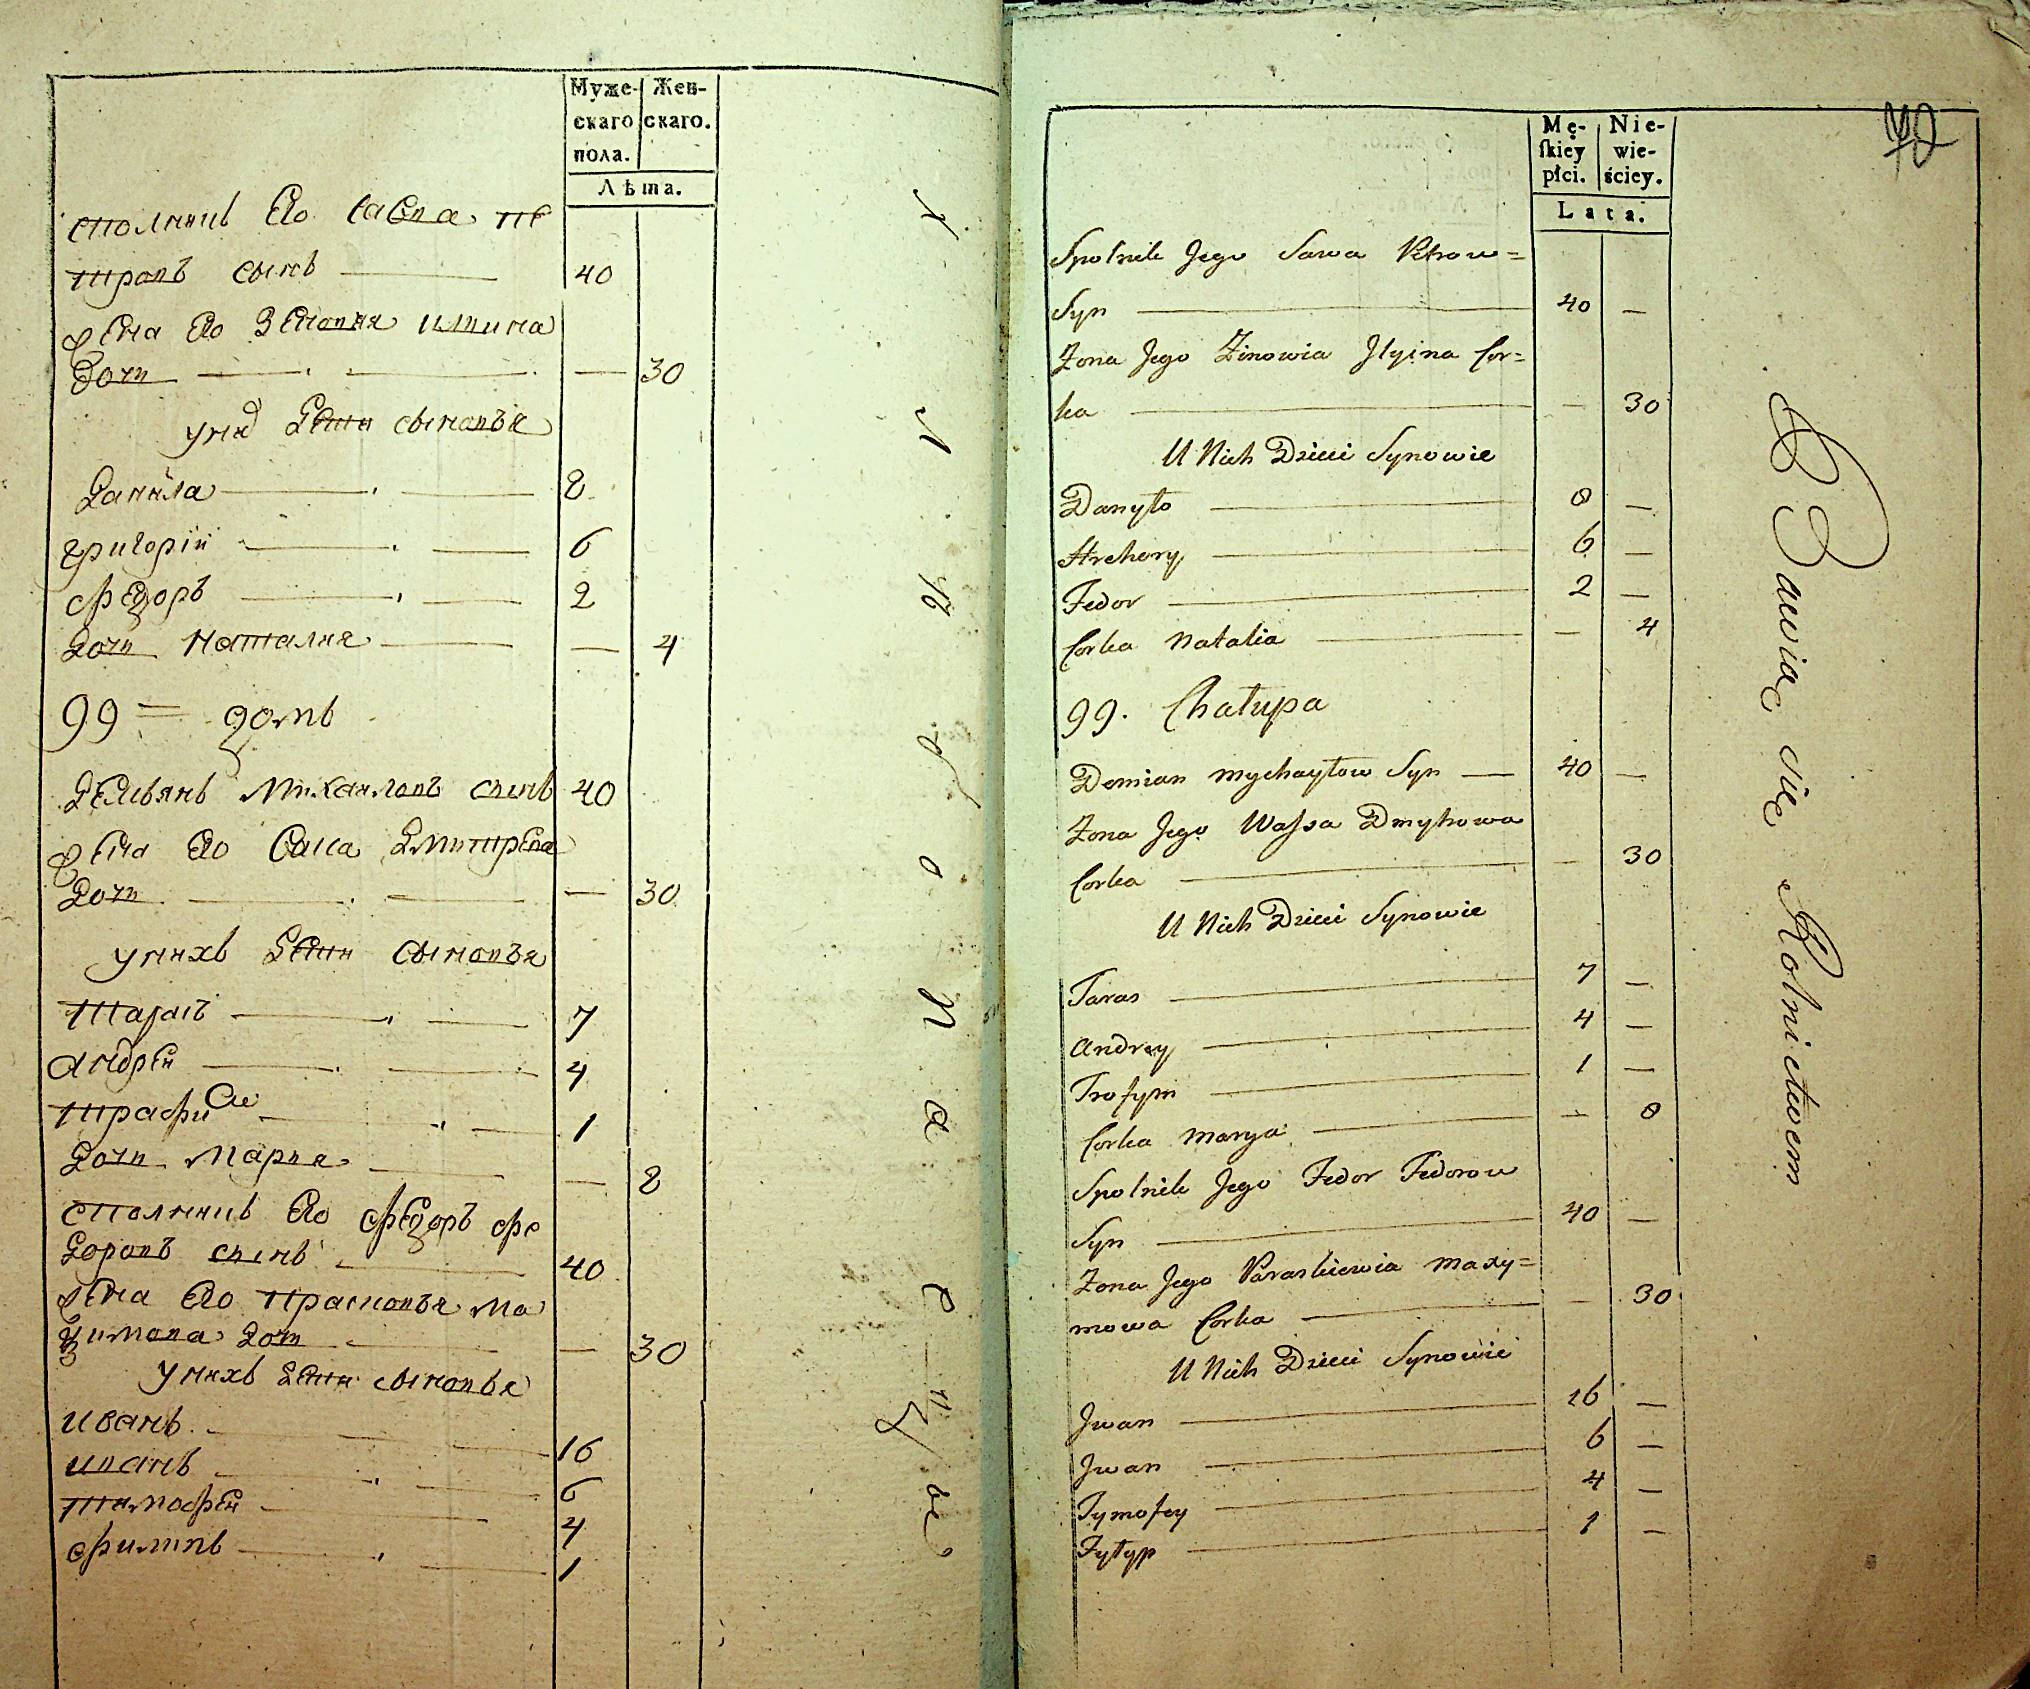 Муже-
скаго
пола.
Жен-
скаго.
Лѣта.
сполникъ его савва пе
тровъ сынъ 40
жена его Зеновия илина
дочь — 30
у них дети сыновья
Данила 8
григорій 6
федоръ 2
дочь наталия — 4
99 = домъ
Демьянъ михаиловъ сынъ 40
жена его васса дмитрева
дочь — 30
у нихъ дети сыновья
тарасъ 7
андрей 4
трафим 1
дочь мария — 8
сполникъ его федоръ фе
доровъ сынъ 40
жена его прасковья ма
ѯимова доч — 30
у нихъ дети сыновья
иванъ 16
иванъ 6
тимофей 4
филипъ 1
Mę-
ſkiey
płci.
Nie-
wie-
ściey.
Lata.
Spolnik Jego Sawa Petrow=
Syn 40 —
Zona Jego Zinowia Jlyina Cor=
ka — 30
U Nich Dzieci Synowie
Danyło 8 —
Hrehory 6 —
Fedor 2 —
Corka Natalia — 4
99. Chałupa
Demian Mychayłow Syn 40 —
Zona Jego Waſsa Dmytrowa
Corka — 30
U Nich Dzieci Synowie
Taras 7 —
Andrey 4 —
Trofym 1 —
Corka Marya — 8
Spolnik Jego Fedor Fedorow
Syn 40 —
Zona Jego Paraskiewia Maxy=
mowa Corka — 30
U Nich Dzieci Synowie
Jwan 16 —
Jwan 6 —
Tymofey 4 —
Fyłyp 1 —
Bawią się Rolnictwem